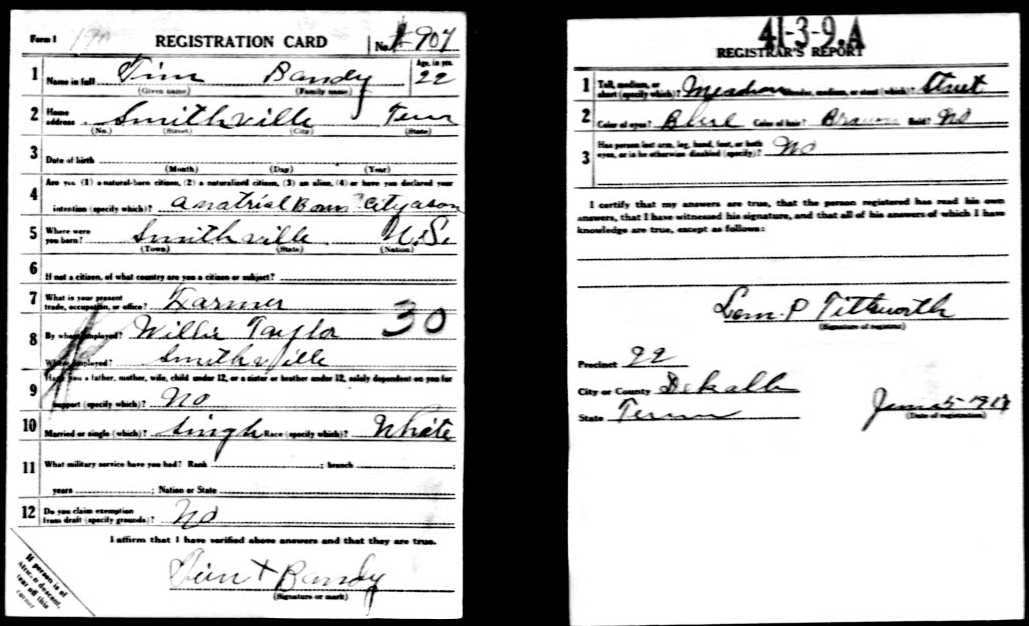 Form 1 REGISTRATION CARD No. 907
1 Name in full Tim Bandy Age, in yrs. 22
(Given name) (Family name)
2 Home address Smithville Tenn
(No.) (Street) (City) (State)
3 Date of birth
(Month) (Day) (Year)
4 Are you (1) a natural-born citizen, (2) a naturalized citizen, (3) an alien, (4) or have you declared your
intention (specify which)? a natrial Born
5 Where were you born? Smithville U.S.
(Town) (State) (Nation)
6 If not a citizen, of what country are you a citizen or subject?
7 What is your present trade, occupation, or office? Farmer
8 By whom employed? Willie Taylor 30
Where employed? Smithville
9 Have you a father, mother, wife, child under 12, or a sister or brother under 12, solely dependent on you for
support (specify which)? No
10 Married or single (which)? Singl Race (specify which)? White
11 What military service have you had? Rank ; branch ;
years ; Nation or State
12 Do you claim exemption from draft (specify grounds)? No
I affirm that I have verified above answers and that they are true.
Tim + Bandy
(Signature or mark)
If person is of
African descent,
tear off this
corner
41-3-9.A
REGISTRAR'S REPORT
1 Tall, medium, or short (specify which)? Slender, medium, or stout (which)? Stout
2 Color of eyes? Blue Color of hair? Brown Bald? No
3 Has person lost arm, leg, hand, foot, or both
eyes, or is he otherwise disabled (specify)? No
I certify that my answers are true, that the person registered has read his own
answers, that I have witnessed his signature, and that all of his answers of which I have
knowledge are true, except as follows:
P Tittsworth
(Signature of registrar)
Precinct 22
City or County Dekalb
State Tenn
(Date of registration)